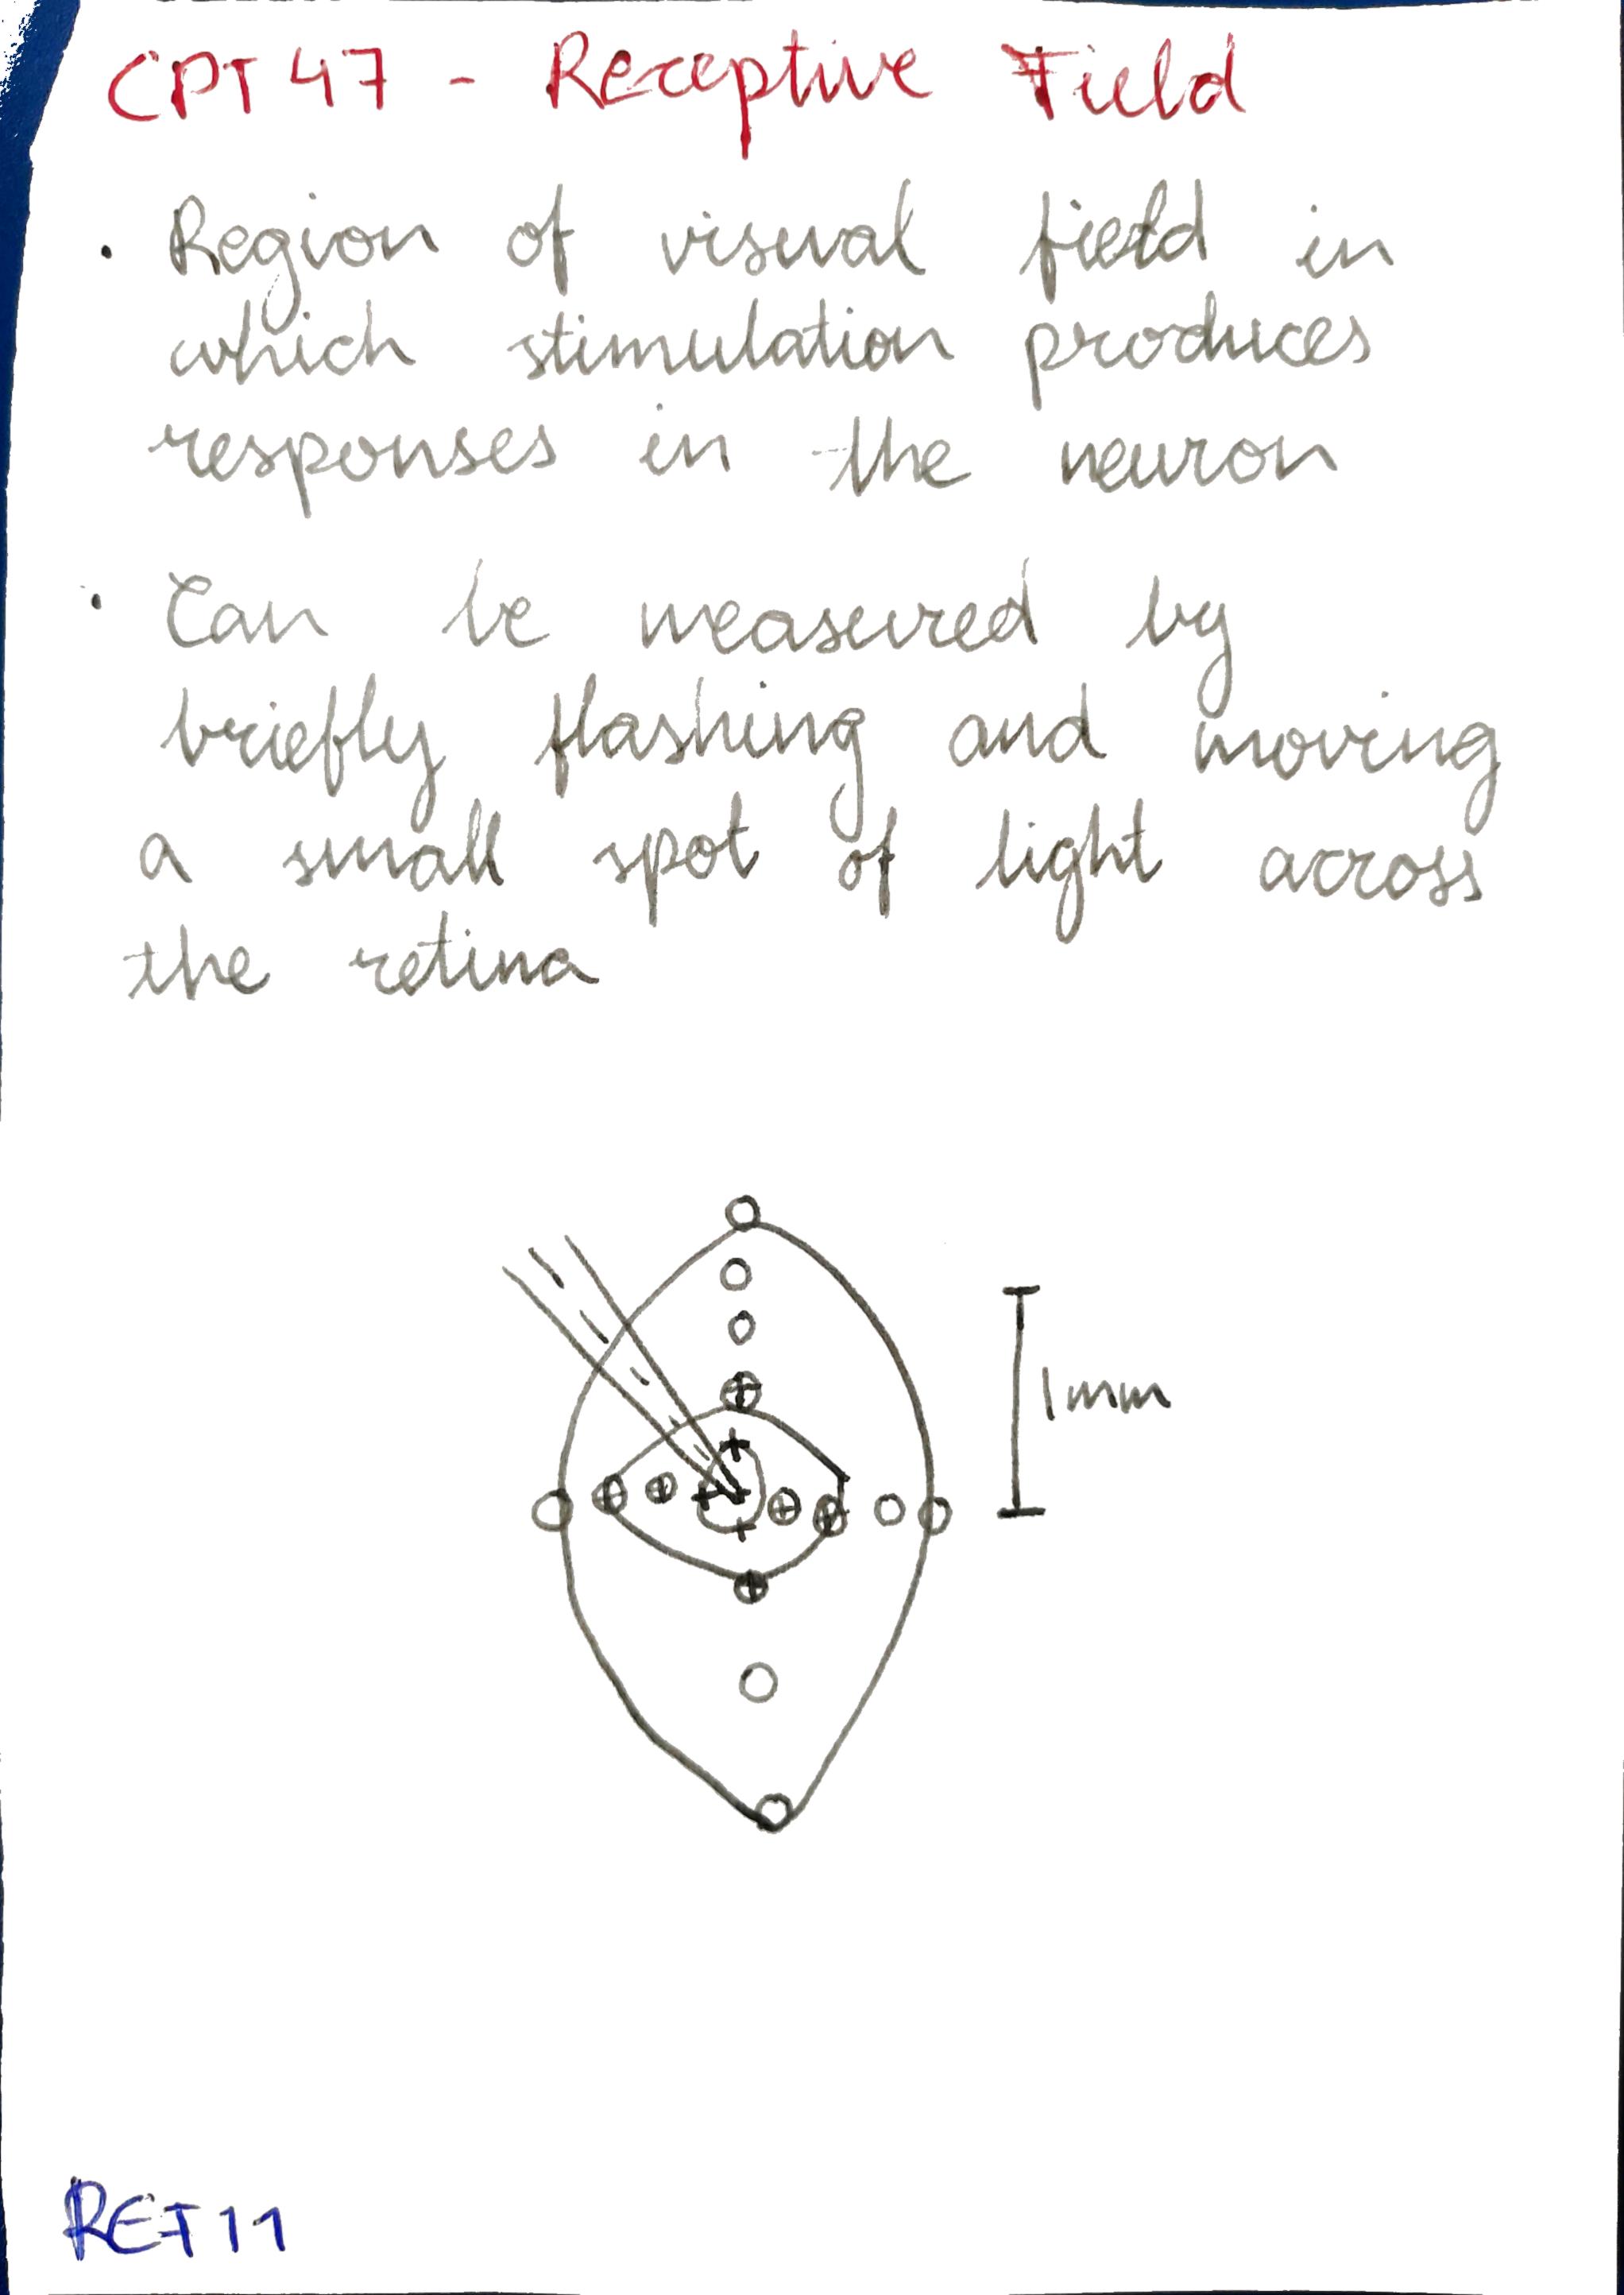 CPT 47 - Receptive Field
· Region of visual field in
which stimulation produces
responses in the neuron
· Can be measured by
briefly flashing and moving
a small spot of light across
the retina
1mm
RET 11